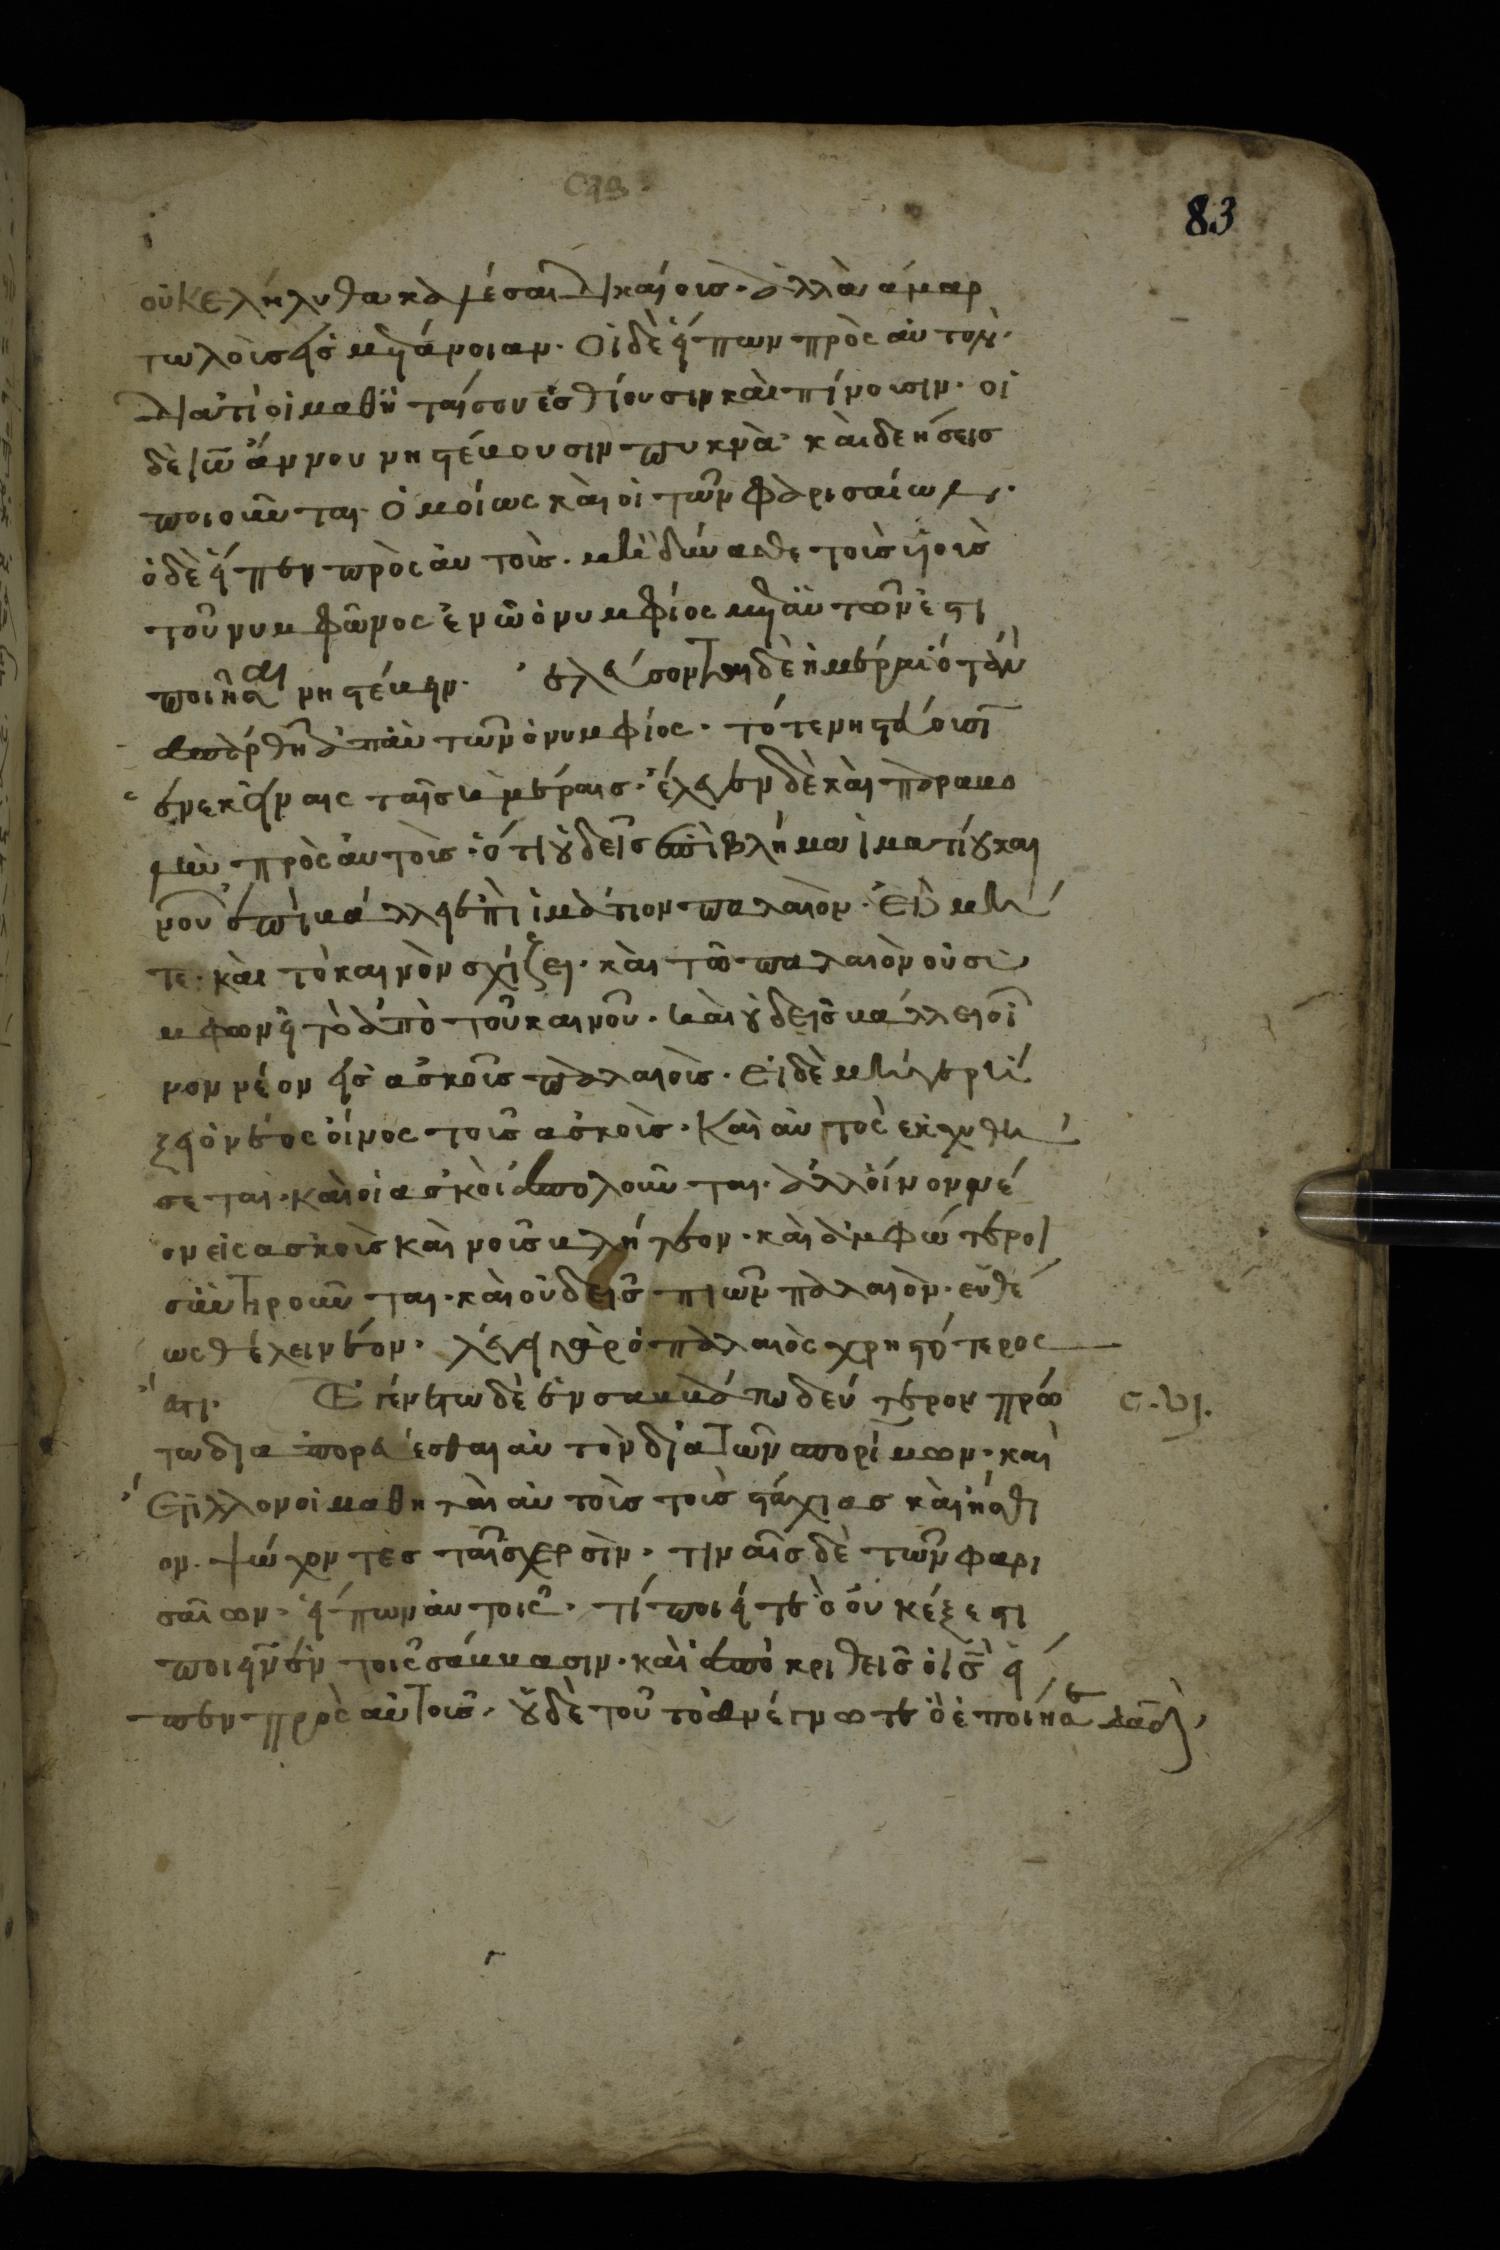 83
οὐκ ἐλήλυθα καλέσαι δικαίοις· ἀλλὰ ἁμαρ
τωλοὶς εἰς μετάνοιαν· Οἱ δὲ εἶπων πρὸς αὐτον·
Διατί οἱ μαθηταί σου ἐσθίουσιν καὶ πίνοισιν· οἱ
δὲ ἰω̅άννου νηστέυουσιν πυκνὰ· καὶ δεήσεις
ποιοῦνται· ὁμοίως καὶ οἱ τῶν φαρισαίων·
ὁ δὲ εἶπεν πρὸς αὐτοὶς· μὴ δύνασθε τοὶς υἱοὶς
τοῦ νυμφῶνος ἐν ὧ ὁ νυμφίος μετ αὐτῶν ἐστι
ποιῆσαι νηστέυειν· ἐλεύσονται δὲ ἡμέραι ὁταν
ἀπαρθῆ ἀπ αὐτῶν ὁ νυμφίος· τότε νηστεύοισι
ἐν εκείναις ταῖς ἡμέραις· ἔλεγεν δὲ καὶ παραβο
λὴν πρὸς αὐτοὶς· ὅτι ουδεὶς ἐπίβλημα ἱματίου και
νοῦ ἐπιβάλλει ἐπὶ ἱμάτιον παλαιὸν· Ει δε μή
γε· καὶ τὸ καινὸν σχίζει· καὶ τῶ παλαιὸν οὐ σι
μφωνῆ τὸ ἀπὸ τοῦ καινοῦ· καὶ ουδεὶς βάλλει οἶ
νον νέον εἰς ασκοῖς παλαιοὶς· Εἰ δὲ μὴ γε ρή
ξει ὁ νέος οἶνος τοῖς ασκοὶς· Καὶ αὐτος ἐκχυθή
σεται· καὶ οἱ ασκοὶ ἀπολοῦνται· ἀλλ οἶνον νέ
ον εἰς ασκοὶς καινοῖς βλητέον· καὶ ἀμφώτεροι
σὺντηροῦνται· καὶ οὐδεὶς πιῶν παλαιὸν· εὐθέ
ως θέλει νέον· λέγει γὰρ ὁ παλαιὸς χρηστότερος
ἐστι· Ἐγένετω δὲ ἐν σαββάτω δευτέρον πρώ
τω διαπορεύεσθαι αὐτὸν δια τῶν σπορίμων· καὶ
ἔτιλλον οἱ μαθηταὶ αὐτοὶς τοὶς στάχιας καὶ ἤσθι
ον· ψώχοντες ταῖς χερσὶν· τιναῖς δὲ τῶν φαρι
σαίων· εἶπων αὐτοις· τί ποιεῖτε ὁ οὐκ έξεστι
ποιεῖν ἐν τοῖς σάββασιν· καὶ ἀποκριθεὶς ὁ ι̅ς̅ εἶ
πεν πρὸς αὐτοις· οὐδὲ τοῦτο ἀνέγνωτε ὃ ἐποίησε δα̅δ̅·
C. VJ.